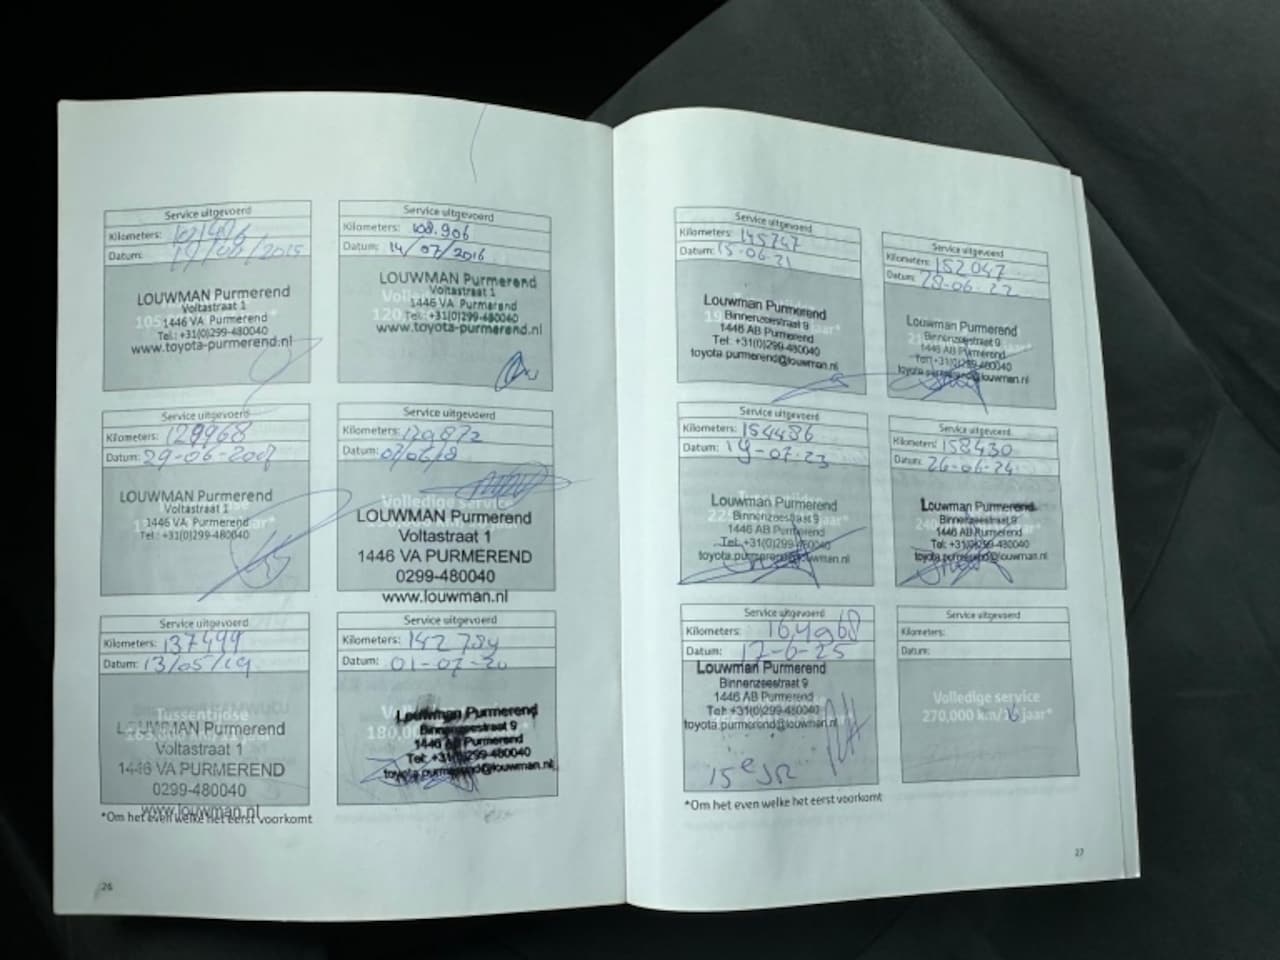 Service uitgevoerd
Kilometers: 101406
Datum: 19/06/2015
LOUWMAN Purmerend
Voltastraat 1
1446 VA Purmerend
Tel.: +31(0)299-480040
www.toyota-purmerend.nl
Service uitgevoerd
Kilometers: 108.906
Datum: 14/07/2016
LOUWMAN Purmerend
Voltastraat 1
1446 VA Purmerend
Tel.: +31(0)299-480040
www.toyota-purmerend.nl
Service uitgevoerd
Kilometers: 129968
Datum: 29-06-2017
LOUWMAN Purmerend
Voltastraat 1
1446 VA Purmerend
Tel.: +31(0)299-480040
Service uitgevoerd
Kilometers:
Datum:
Volledige service
LOUWMAN Purmerend
Voltastraat 1
1446 VA PURMEREND
0299-480040
www.louwman.nl
Service uitgevoerd
Kilometers: 137499
Datum: 13/05/19
Tussentijdse
LOUWMAN Purmerend
Voltastraat 1
1446 VA PURMEREND
0299-480040
www.louwman.nl
Service uitgevoerd
Kilometers: 142784
Datum: 01-07-20
180,000
Louwman Purmerend
Binnenzeestraat 9
1446 AB Purmerend
Tel: +31(0)299-480040
toyota.purmerend@louwman.nl
*Om het even welke het eerst voorkomt
26
Service uitgevoerd
Kilometers: 145747
Datum: 15-06-21
Louwman Purmerend
Binnenzeestraat 9
1446 AB Purmerend
Tel: +31(0)299-480040
toyota.purmerend@louwman.nl
Service uitgevoerd
Kilometers: 152047
Datum: 28-06-22
Louwman Purmerend
Binnenzeestraat 9
1446 AB Purmerend
Tel: +31(0)299-480040
toyota.purmerend@louwman.nl
Service uitgevoerd
Kilometers: 154486
Datum: 19-07-23
Louwman Purmerend
Binnenzeestraat 9
1446 AB Purmerend
Tel: +31(0)299-480040
toyota.purmerend@louwman.nl
Service uitgevoerd
Kilometers: 158430
Datum: 26-06-24
Louwman Purmerend
Binnenzeestraat 9
1446 AB Purmerend
Tel: +31(0)299-480040
toyota.purmerend@louwman.nl
Service uitgevoerd
Kilometers: 164968
Datum: 17-6-25
Louwman Purmerend
Binnenzeestraat 9
1446 AB Purmerend
Tel: +31(0)299-480040
toyota.purmerend@louwman.nl
15e JR
Service uitgevoerd
Kilometers:
Datum:
Volledige service
270,000 km/ jaar*
*Om het even welke het eerst voorkomt
27